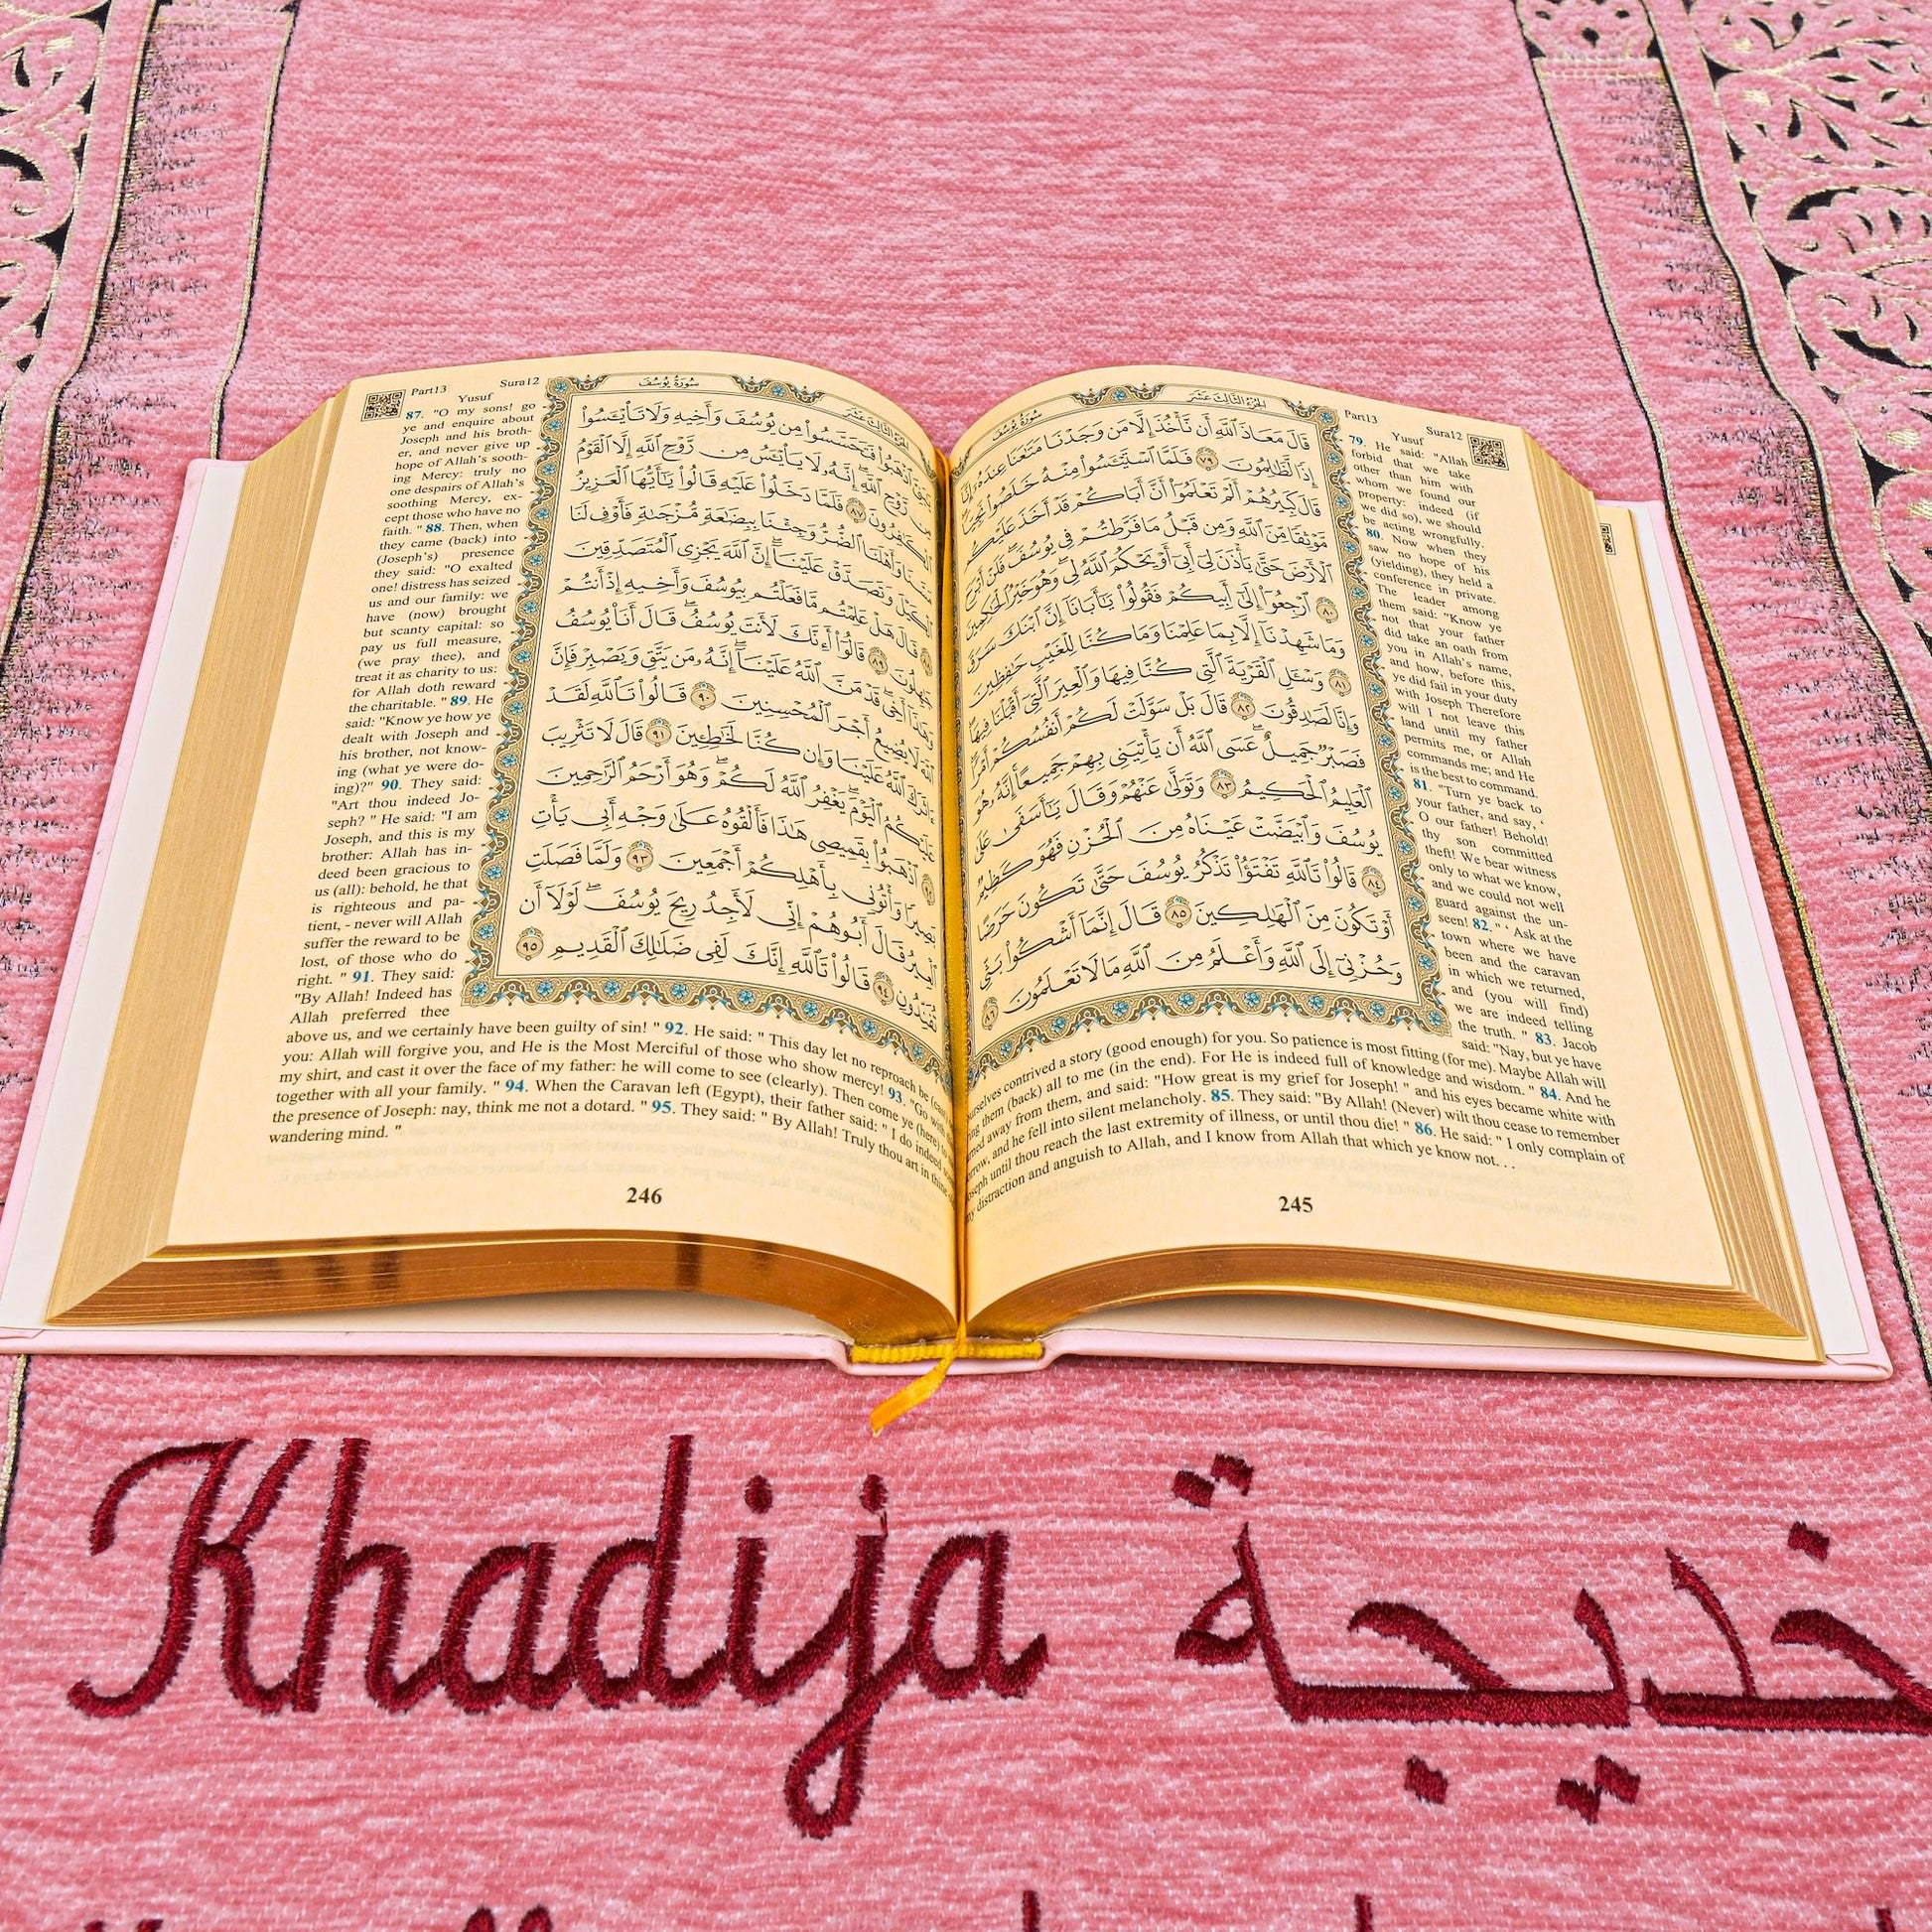 الجُزْءُ الثَّالِثَ عَشَرَ
سُورَةُ يُوسُفَ
قَالَ مَعَاذَ ٱللَّهِ أَن نَّأْخُذَ إِلَّا مَن وَجَدْنَا مَتَٰعَنَا عِندَهُۥٓ إِنَّآ
إِذًا لَّظَٰلِمُونَ ٧٩ فَلَمَّا ٱسْتَيْـَٔسُوا۟ مِنْهُ خَلَصُوا۟ نَجِيًّا
قَالَ كَبِيرُهُمْ أَلَمْ تَعْلَمُوٓا۟ أَنَّ أَبَاكُمْ قَدْ أَخَذَ عَلَيْكُم
مَّوْثِقًا مِّنَ ٱللَّهِ وَمِن قَبْلُ مَا فَرَّطتُمْ فِى يُوسُفَ فَلَنْ أَبْرَحَ
ٱلْأَرْضَ حَتَّىٰ يَأْذَنَ لِىٓ أَبِىٓ أَوْ يَحْكُمَ ٱللَّهُ لِى وَهُوَ خَيْرُ ٱلْحَٰكِمِينَ
٨٠ ٱرْجِعُوٓا۟ إِلَىٰٓ أَبِيكُمْ فَقُولُوا۟ يَٰٓأَبَانَآ إِنَّ ٱبْنَكَ سَرَقَ
وَمَا شَهِدْنَآ إِلَّا بِمَا عَلِمْنَا وَمَا كُنَّا لِلْغَيْبِ حَٰفِظِينَ
٨١ وَسْـَٔلِ ٱلْقَرْيَةَ ٱلَّتِى كُنَّا فِيهَا وَٱلْعِيرَ ٱلَّتِىٓ أَقْبَلْنَا فِيهَا
وَإِنَّا لَصَٰدِقُونَ ٨٢ قَالَ بَلْ سَوَّلَتْ لَكُمْ أَنفُسُكُمْ أَمْرًا
فَصَبْرٌ جَمِيلٌ عَسَى ٱللَّهُ أَن يَأْتِيَنِى بِهِمْ جَمِيعًا إِنَّهُۥ هُوَ
ٱلْعَلِيمُ ٱلْحَكِيمُ ٨٣ وَتَوَلَّىٰ عَنْهُمْ وَقَالَ يَٰٓأَسَفَىٰ عَلَىٰ
يُوسُفَ وَٱبْيَضَّتْ عَيْنَاهُ مِنَ ٱلْحُزْنِ فَهُوَ كَظِيمٌ
٨٤ قَالُوا۟ تَٱللَّهِ تَفْتَؤُا۟ تَذْكُرُ يُوسُفَ حَتَّىٰ تَكُونَ حَرَضًا
أَوْ تَكُونَ مِنَ ٱلْهَٰلِكِينَ ٨٥ قَالَ إِنَّمَآ أَشْكُوا۟ بَثِّى
وَحُزْنِىٓ إِلَى ٱللَّهِ وَأَعْلَمُ مِنَ ٱللَّهِ مَا لَا تَعْلَمُونَ ٨٦
Part13 Sura12
Yusuf
79. He said: "Allah
forbid that we take
other than him with
whom we found our
property: indeed (if
we did so), we should
be acting wrongfully.
80. Now when they
saw no hope of his
(yielding), they held a
conference in private.
The leader among
them said: "Know ye
not that your father
did take an oath from
you in Allah's name,
and how, before this,
ye did fail in your duty
with Joseph Therefore
will I not leave this
land until my father
permits me, or Allah
commands me; and He
is the best to command.
81. "Turn ye back to
your father, and say, '
O our father! Behold!
thy son committed
theft! We bear witness
only to what we know,
and we could not well
guard against the un-
seen! 82." ' Ask at the
town where we have
been and the caravan
in which we returned,
and (you will find)
we are indeed telling
the truth. " 83. Jacob
said: "Nay, but ye have
contrived a story (good enough) for you. So patience is most fitting (for me). Maybe Allah will
them (back) all to me (in the end). For He is indeed full of knowledge and wisdom. " 84. And he
away from them, and said: "How great is my grief for Joseph! " and his eyes became white with
and he fell into silent melancholy. 85. They said: "By Allah! (Never) wilt thou cease to remember
until thou reach the last extremity of illness, or until thou die! " 86. He said: " I only complain of
distraction and anguish to Allah, and I know from Allah that which ye know not. . .
245
الجُزْءُ الثَّالِثَ عَشَرَ
سُورَةُ يُوسُفَ
ٱذْهَبُوا۟ فَتَحَسَّسُوا۟ مِن يُوسُفَ وَأَخِيهِ وَلَا تَا۟يْـَٔسُوا۟
مِن رَّوْحِ ٱللَّهِ إِنَّهُۥ لَا يَا۟يْـَٔسُ مِن رَّوْحِ ٱللَّهِ إِلَّا ٱلْقَوْمُ
ٱلْكَٰفِرُونَ ٨٧ فَلَمَّا دَخَلُوا۟ عَلَيْهِ قَالُوا۟ يَٰٓأَيُّهَا ٱلْعَزِيزُ
وَأَهْلَنَا ٱلضُّرُّ وَجِئْنَا بِبِضَٰعَةٍ مُّزْجَىٰةٍ فَأَوْفِ لَنَا
ٱلْكَيْلَ وَتَصَدَّقْ عَلَيْنَآ إِنَّ ٱللَّهَ يَجْزِى ٱلْمُتَصَدِّقِينَ
قَالَ هَلْ عَلِمْتُم مَّا فَعَلْتُم بِيُوسُفَ وَأَخِيهِ إِذْ أَنتُمْ
جَٰهِلُونَ ٨٩ قَالُوٓا۟ أَءِنَّكَ لَأَنتَ يُوسُفُ قَالَ أَنَا۠ يُوسُفُ
وَهَٰذَآ أَخِى قَدْ مَنَّ ٱللَّهُ عَلَيْنَآ إِنَّهُۥ مَن يَتَّقِ وَيَصْبِرْ فَإِنَّ
ٱللَّهَ لَا يُضِيعُ أَجْرَ ٱلْمُحْسِنِينَ ٩٠ قَالُوا۟ تَٱللَّهِ لَقَدْ
ءَاثَرَكَ ٱللَّهُ عَلَيْنَا وَإِن كُنَّا لَخَٰطِـِٔينَ ٩١ قَالَ لَا تَثْرِيبَ
عَلَيْكُمُ ٱلْيَوْمَ يَغْفِرُ ٱللَّهُ لَكُمْ وَهُوَ أَرْحَمُ ٱلرَّٰحِمِينَ
ٱذْهَبُوا۟ بِقَمِيصِى هَٰذَا فَأَلْقُوهُ عَلَىٰ وَجْهِ أَبِى يَأْتِ
بَصِيرًا وَأْتُونِى بِأَهْلِكُمْ أَجْمَعِينَ ٩٣ وَلَمَّا فَصَلَتِ
ٱلْعِيرُ قَالَ أَبُوهُمْ إِنِّى لَأَجِدُ رِيحَ يُوسُفَ لَوْلَآ أَن
تُفَنِّدُونِ ٩٤ قَالُوا۟ تَٱللَّهِ إِنَّكَ لَفِى ضَلَٰلِكَ ٱلْقَدِيمِ ٩٥
Part13 Sura12
Yusuf
87. "O my sons! go
ye and enquire about
Joseph and his broth-
er, and never give up
hope of Allah's sooth-
ing Mercy: truly no
one despairs of Allah's
soothing Mercy, ex-
cept those who have no
faith. " 88. Then, when
they came (back) into
(Joseph's) presence
they said: "O exalted
one! distress has seized
us and our family: we
have (now) brought
but scanty capital: so
pay us full measure,
(we pray thee), and
treat it as charity to us:
for Allah doth reward
the charitable. " 89. He
said: "Know ye how ye
dealt with Joseph and
his brother, not know-
ing (what ye were do-
ing)?" 90. They said:
"Art thou indeed Jo-
seph? " He said: "I am
Joseph, and this is my
brother: Allah has in-
deed been gracious to
us (all): behold, he that
is righteous and pa-
tient, - never will Allah
suffer the reward to be
lost, of those who do
right. " 91. They said:
"By Allah! Indeed has
Allah preferred thee
above us, and we certainly have been guilty of sin! " 92. He said: " This day let no reproach be
you: Allah will forgive you, and He is the Most Merciful of those who show mercy! 93. "Go with
my shirt, and cast it over the face of my father: he will come to see (clearly). Then come ye (here)
together with all your family. " 94. When the Caravan left (Egypt), their father said: " I do indeed
the presence of Joseph: nay, think me not a dotard. " 95. They said: " By Allah! Truly thou art in thine
wandering mind. "
246
Khadija خديجة